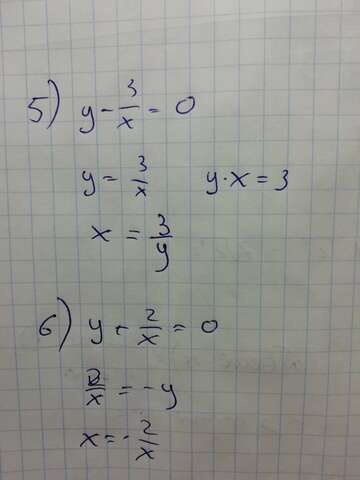 5) y - 3/x = 0
y = 3/x y·x = 3
x = 3/y
6) y + 2/x = 0
2/x = -y
x = -2/x